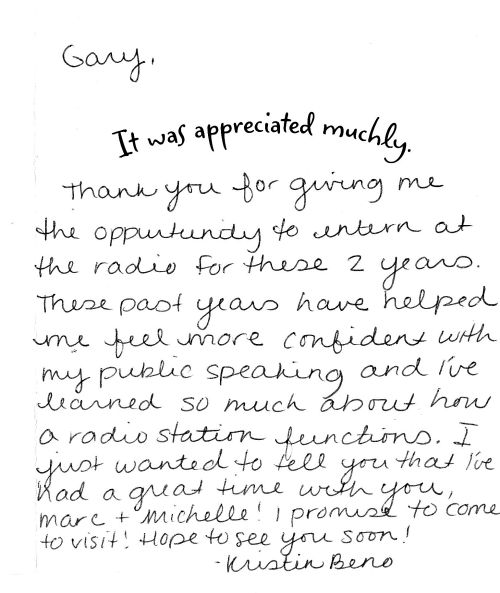 Gary,
It was appreciated muchly.
Thank you for giving me
the oppurtunity to intern at
the radio for these 2 years.
These past years have helped
me feel more confident with
my public speaking and I've
learned so much about how
a radio station functions. I
just wanted to tell you that I've
had a great time with you,
marc + Michelle! I promise to come
to visit! Hope to see you soon!
- Kristin Beno